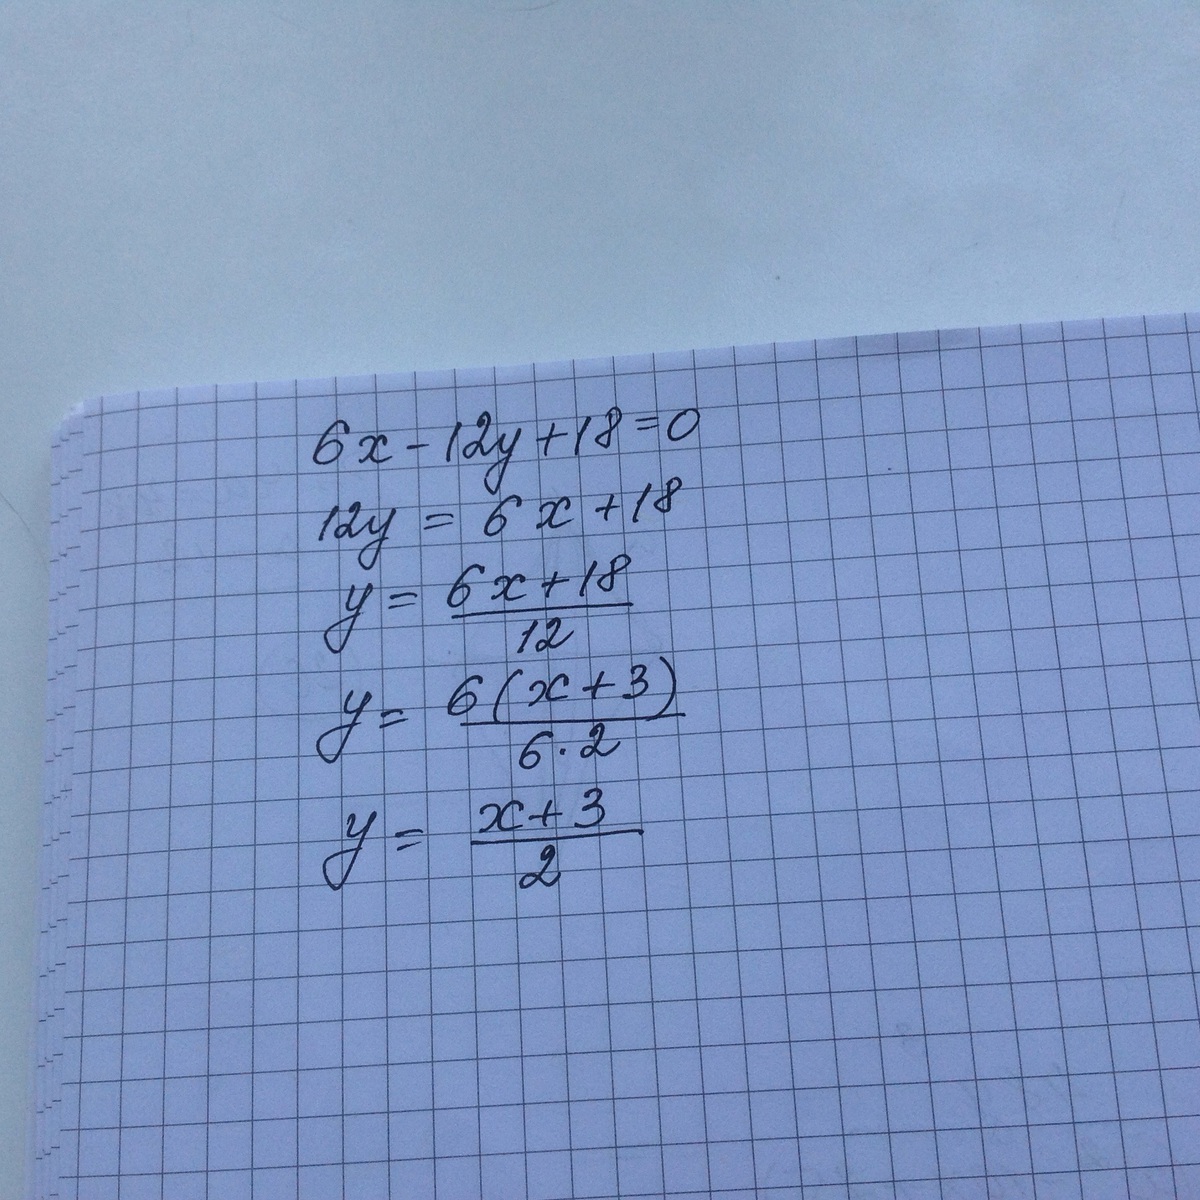 6x-12y+18=0
12y = 6x+18
y = 6x+18
12
y = 6(x+3)
6·2
y = x+3
2